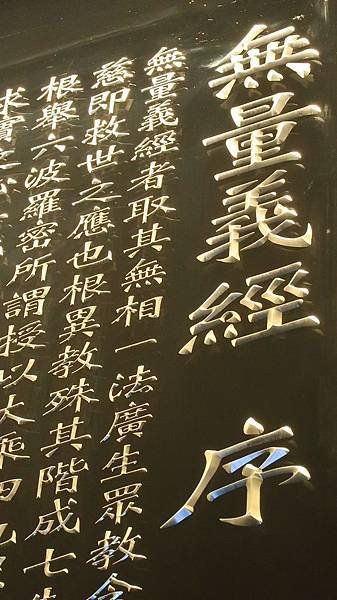 無量義經 序
無量義經者取其無相一法廣生眾教含
慈即救世之應也根異教殊其階成七
根舉六波羅密所謂授以大乘四
求